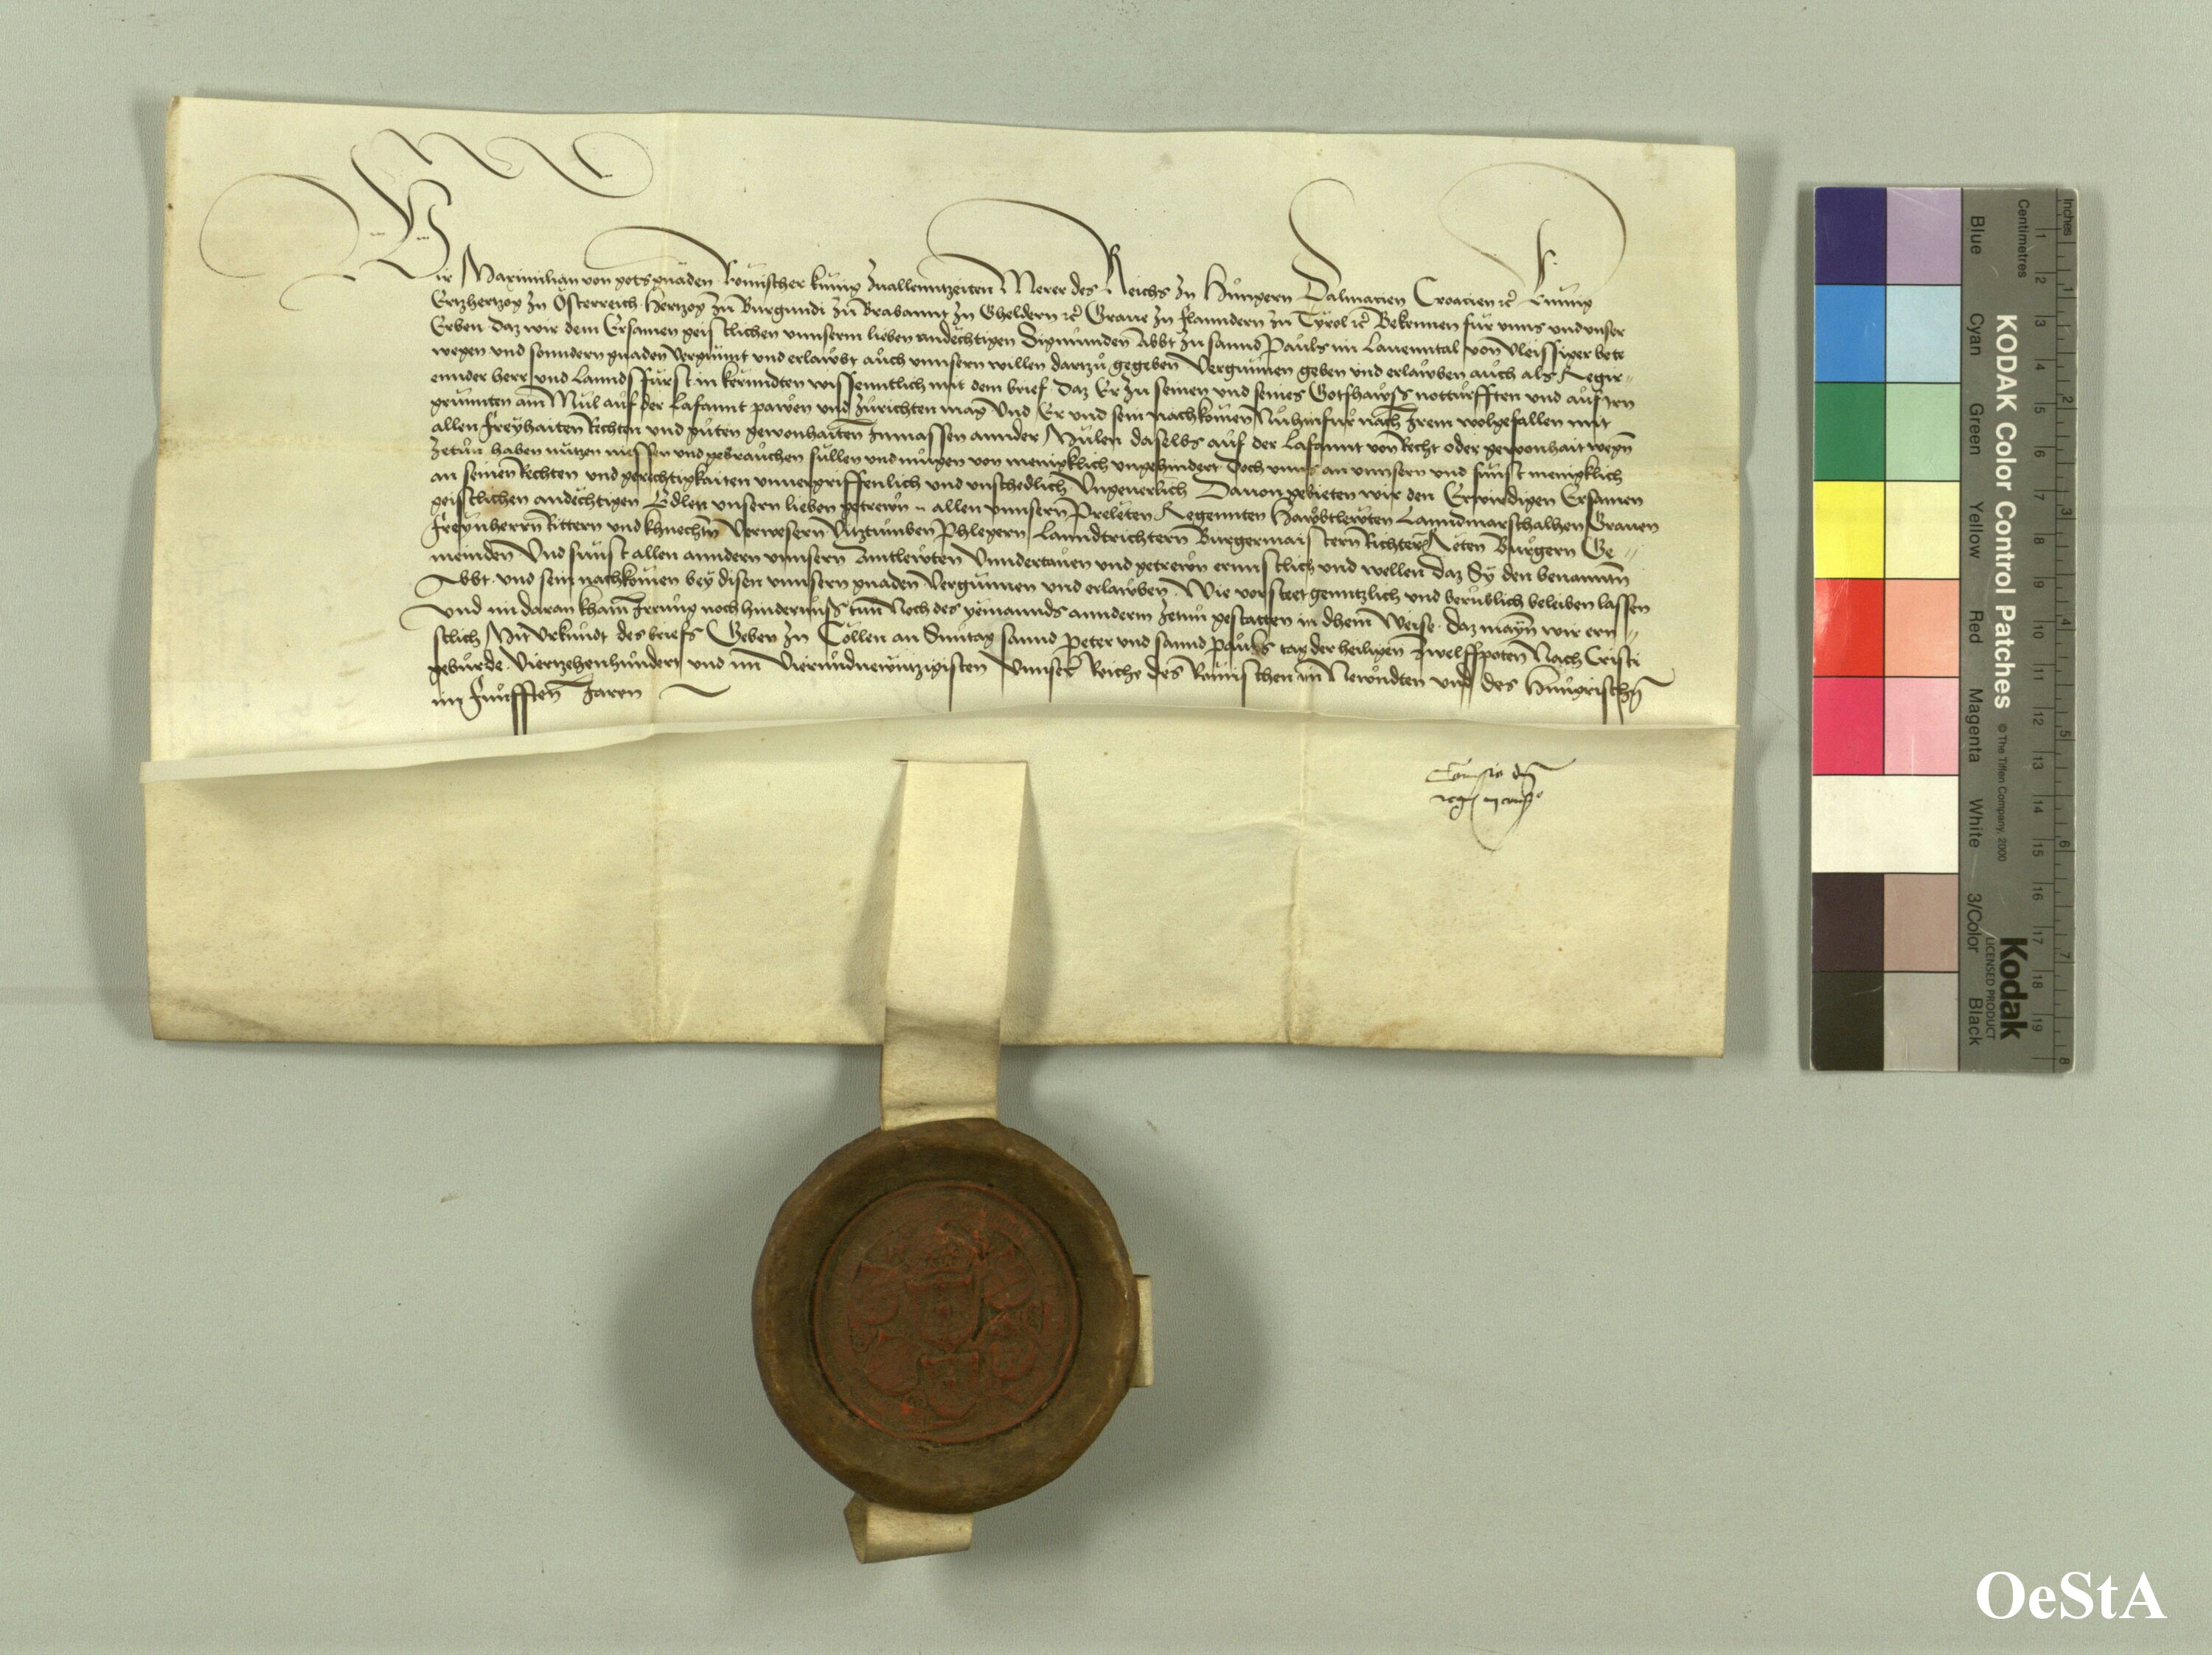 Wir Maximilian von gots gnaden Römischer kunig zuallenntzeiten Merer des Reichs zu Hungern Dalmacien Croacien etc Kunig
Ertzhertzog zu Österreich Hertzog zu Burgundi zu Brabannt zu Gheldern etc Graue zu Flanndern zu Tyrol etc Bekennen für vnns vnd vnser
Erben daz wir dem Ersamen geistlichen vnnserm lieben andechtigen Sigmunden Abbt zu sannd Pauls im Lauenntal von vleissiger bete
wegen vnd sonndern gnaden vergünnt vnd erlawbt auch vnnsern willen dartzu gegeben Vergünnen geben vnd erlawben auch als Regir-
ennder herr vnd Lanndsfürst in kernndten wissenntlich mit dem brief Daz Er zu seinen vnd seines Gotshawss notturfften vnd auf irn
grunnten ain Mül auf der Lafannt pawen vnd zurichten mag Vnd Er vnd sein nachkomen Nuhinfur nach Irem wolgefallen mit
allen Freyhaiten Rechten vnd guten gewonhaiten Inmassen annder Mülen daselbs auf der Lafannt von Recht oder gewonhait wegn
zetun haben nutzen niessen vnd gebrauchen sullen vnd mugen von menigklich vngehindert Doch vnns an vnnsern vnd sunst menigklich
an seinen Rechten vnd gerechtigkaiten vnuergriffenlich vnd vnschedlich Vngeuerlich Dauon gebieten wir den Erwirdigen Ersamen
geistlichen andechtigen Edlen vnsern lieben getrewn allen vnnsern Preleten Regennten Hawbtlewten Lanndmarschalhen Grauen
Freynherrn Rittern vnd khnechtn Verwesern Vitztumben Phlegern Lanndtrichtern Burgermaistern Richtern Reten Burgern Ge-
meinden Vnd sunst allen anndern vnnsern Ambtlewten Vnndertanen vnd getrewn ernnstlich vnd wellen daz Sy den benannten
Abbt vnd sein nachkomen bey disen vnnsern gnaden Vergünnen vnd erlawben Wie vorsteet genntzlich vnd berublich beleiben lassen
Vnd im daran khain Irrung noch hindernuss tun Noch des yemannds annderm zetun gestatten in dhein Weise daz mayn wir ern-
stlich Mit Vrkundt des briefs Geben zu Cöllen an Suntag sannd Peter vnd sannd Pauls tag der heiligen Zwelffpoten Nach Cristi
geburde Viertzehenhundert vnd im Viervndnewntzigisten Vnnserr Reiche des Römischen im Newndten vnd des Hungrischen
im Funfften Jaren
Comissio dni
regis in consilio
KODAK Color Control Patches © The Tiffen Company, 2000
Kodak
LICENSED PRODUCT
Blue Cyan Green Yellow Red Magenta White 3/Color Black
Inches 1 2 3 4 5 6 7 8
Centimetres 1 2 3 4 5 6 7 8 9 10 11 12 13 14 15 16 17 18 19
OeStA